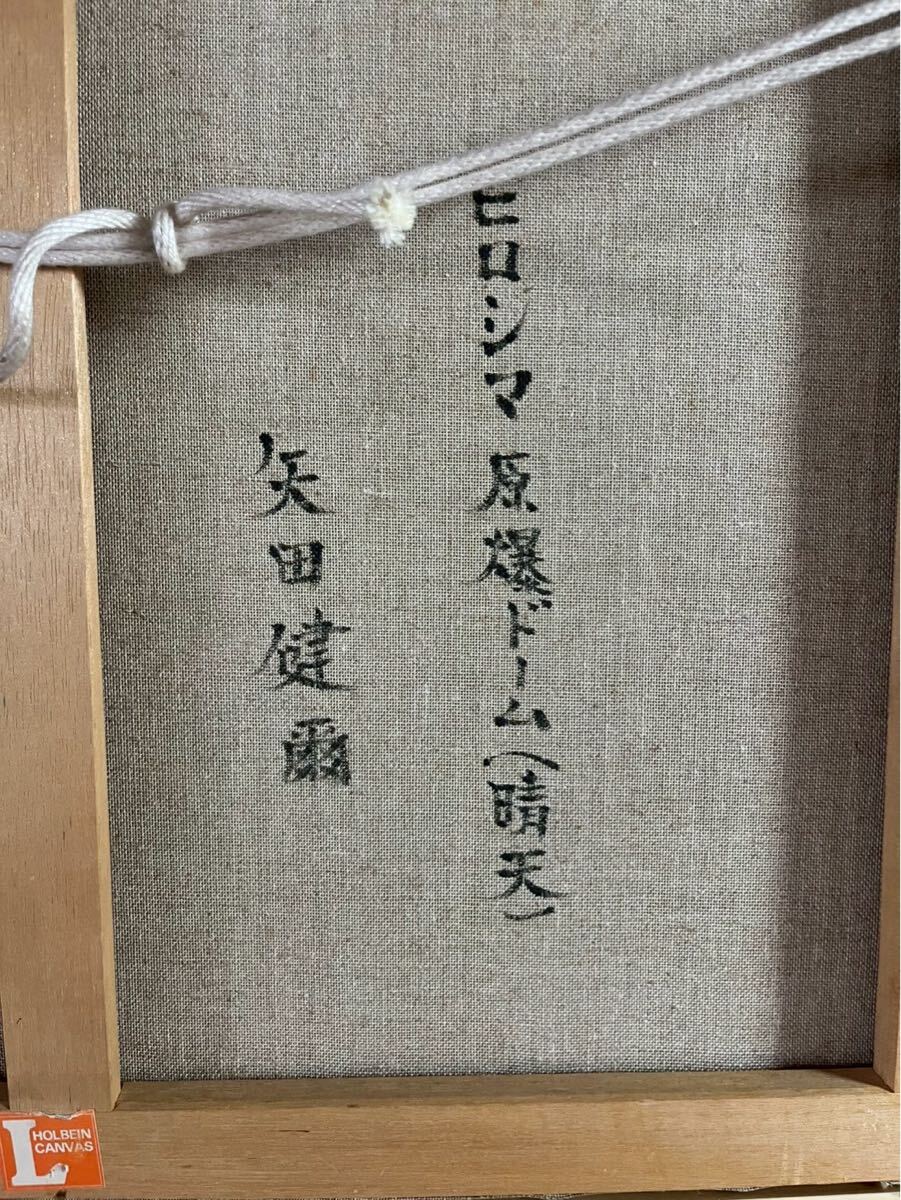 ヒロシマ原爆ドーム(晴天)
矢田健爾
L HOLBEIN
CANVAS